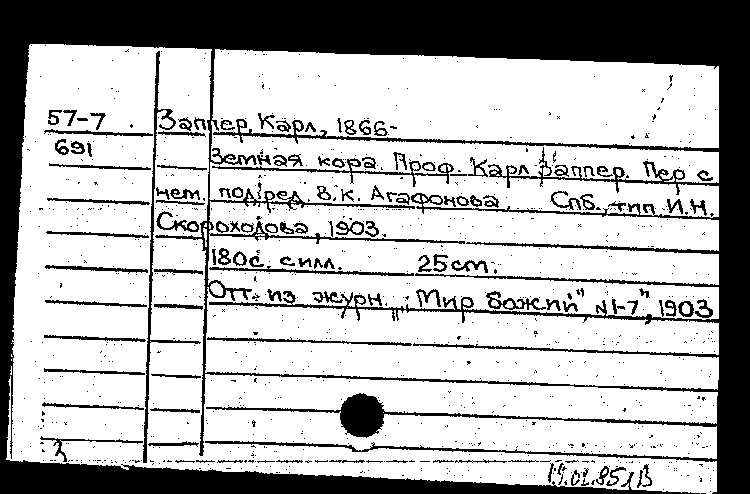 57-7 Заппер, Карл, 1866-
691 Земная кора. Проф. Карл Заппер. Пер с
нем. под ред. В.К. Агафонова, Спб., тип И.Н.
Скороходова, 1903.
180с. с илл. 25 cm.
Отт. из журн. „Мир Божий", №1-7", 1903
З